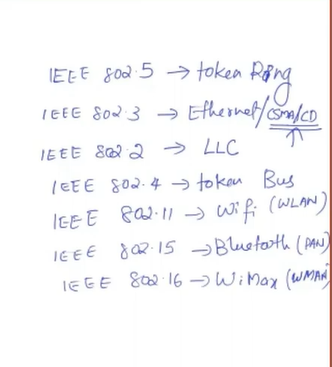 IEEE 802.5 → token Ring
IEEE 802.3 → Ethernet/CSMA/CD
IEEE 802.2 → LLC
IEEE 802.4 → token Bus
IEEE 802.11 → Wifi (WLAN)
IEEE 802.15 → Bluetooth (PAN)
IEEE 802.16 → WiMax (WMAN)